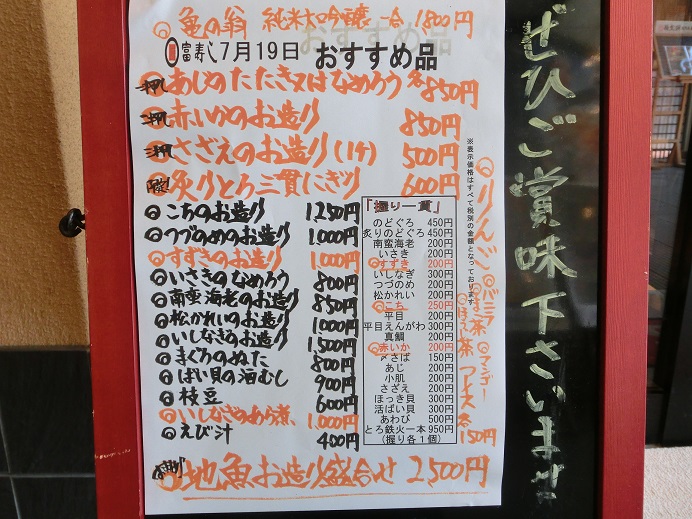 亀の翁 純米大吟醸 一合 1,800円
富寿し 7月19日 おすすめ品
あじのたたき又はなめろう 各850円
赤いかのお造り 850円
さざえのお造り(1ケ) 500円
炙りとろ三貫にぎり 600円
こちのお造り 1,250円
つづのめのお造り 1,000円
すずきのお造り 1,000円
いさきのなめろう 800円
南蛮海老のお造り 850円
松かれいのお造り 1,000円
いしなぎのお造り 1,500円
まぐろのぬた 800円
ばい貝の酒むし 900円
枝豆 600円
いしなぎのあら煮 1,000円
えび汁 400円
地魚お造り盛合せ 2,500円
「握り一貫」
のどぐろ 450円
炙りのどぐろ 450円
南蛮海老 200円
いさき 200円
すずき 200円
いしなぎ 300円
つづのめ 200円
松かれい 200円
こち 250円
平目 200円
平目えんがわ 300円
真鯛 200円
赤いか 200円
〆さば 150円
あじ 200円
小肌 200円
さざえ 200円
ほっき貝 300円
活ばい貝 300円
あわび 500円
とろ鉄火一本 950円
(握り各1個)
※表示価格はすべて税別の金額となっております
りんご
バニラ
ほうじ茶
アイス 各150円
ぜひご賞味下さいませ